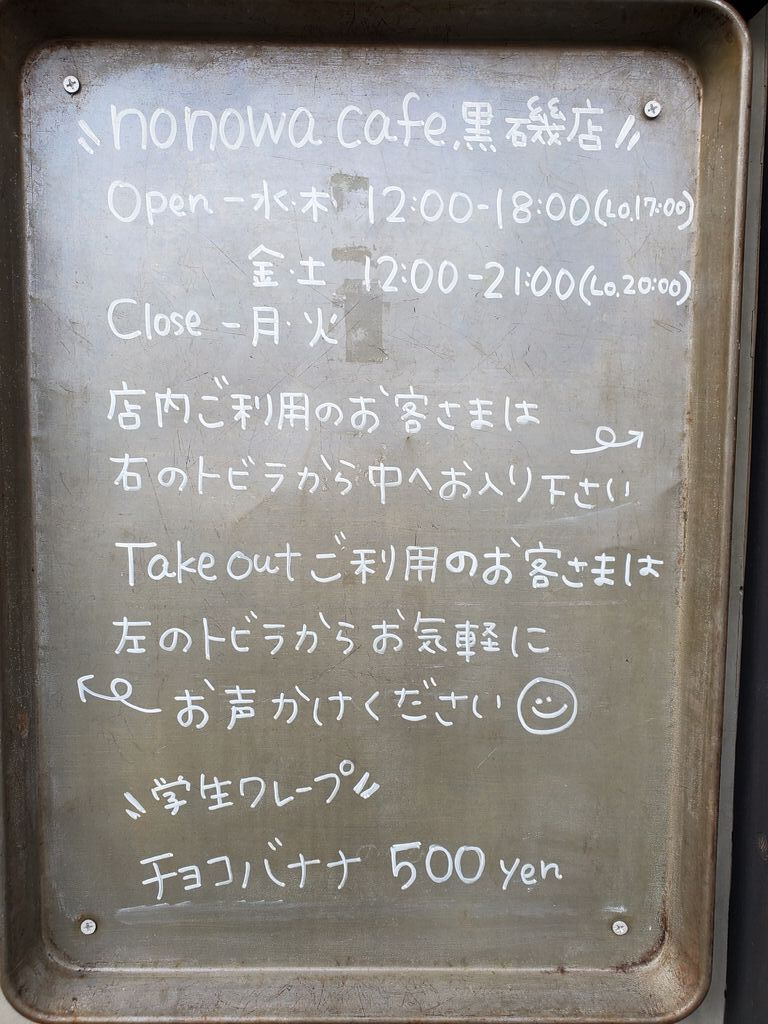 nonowa cafe 黒磯店
Open - 水・木 12:00-18:00(Lo.17:00)
金・土 12:00-21:00(Lo.20:00)
Close - 月・火
店内ご利用のお客さまは
右のトビラから中へお入り下さい
Take outご利用のお客さまは
左のトビラからお気軽に
お声かけください
学生クレープ
チョコバナナ 500 yen